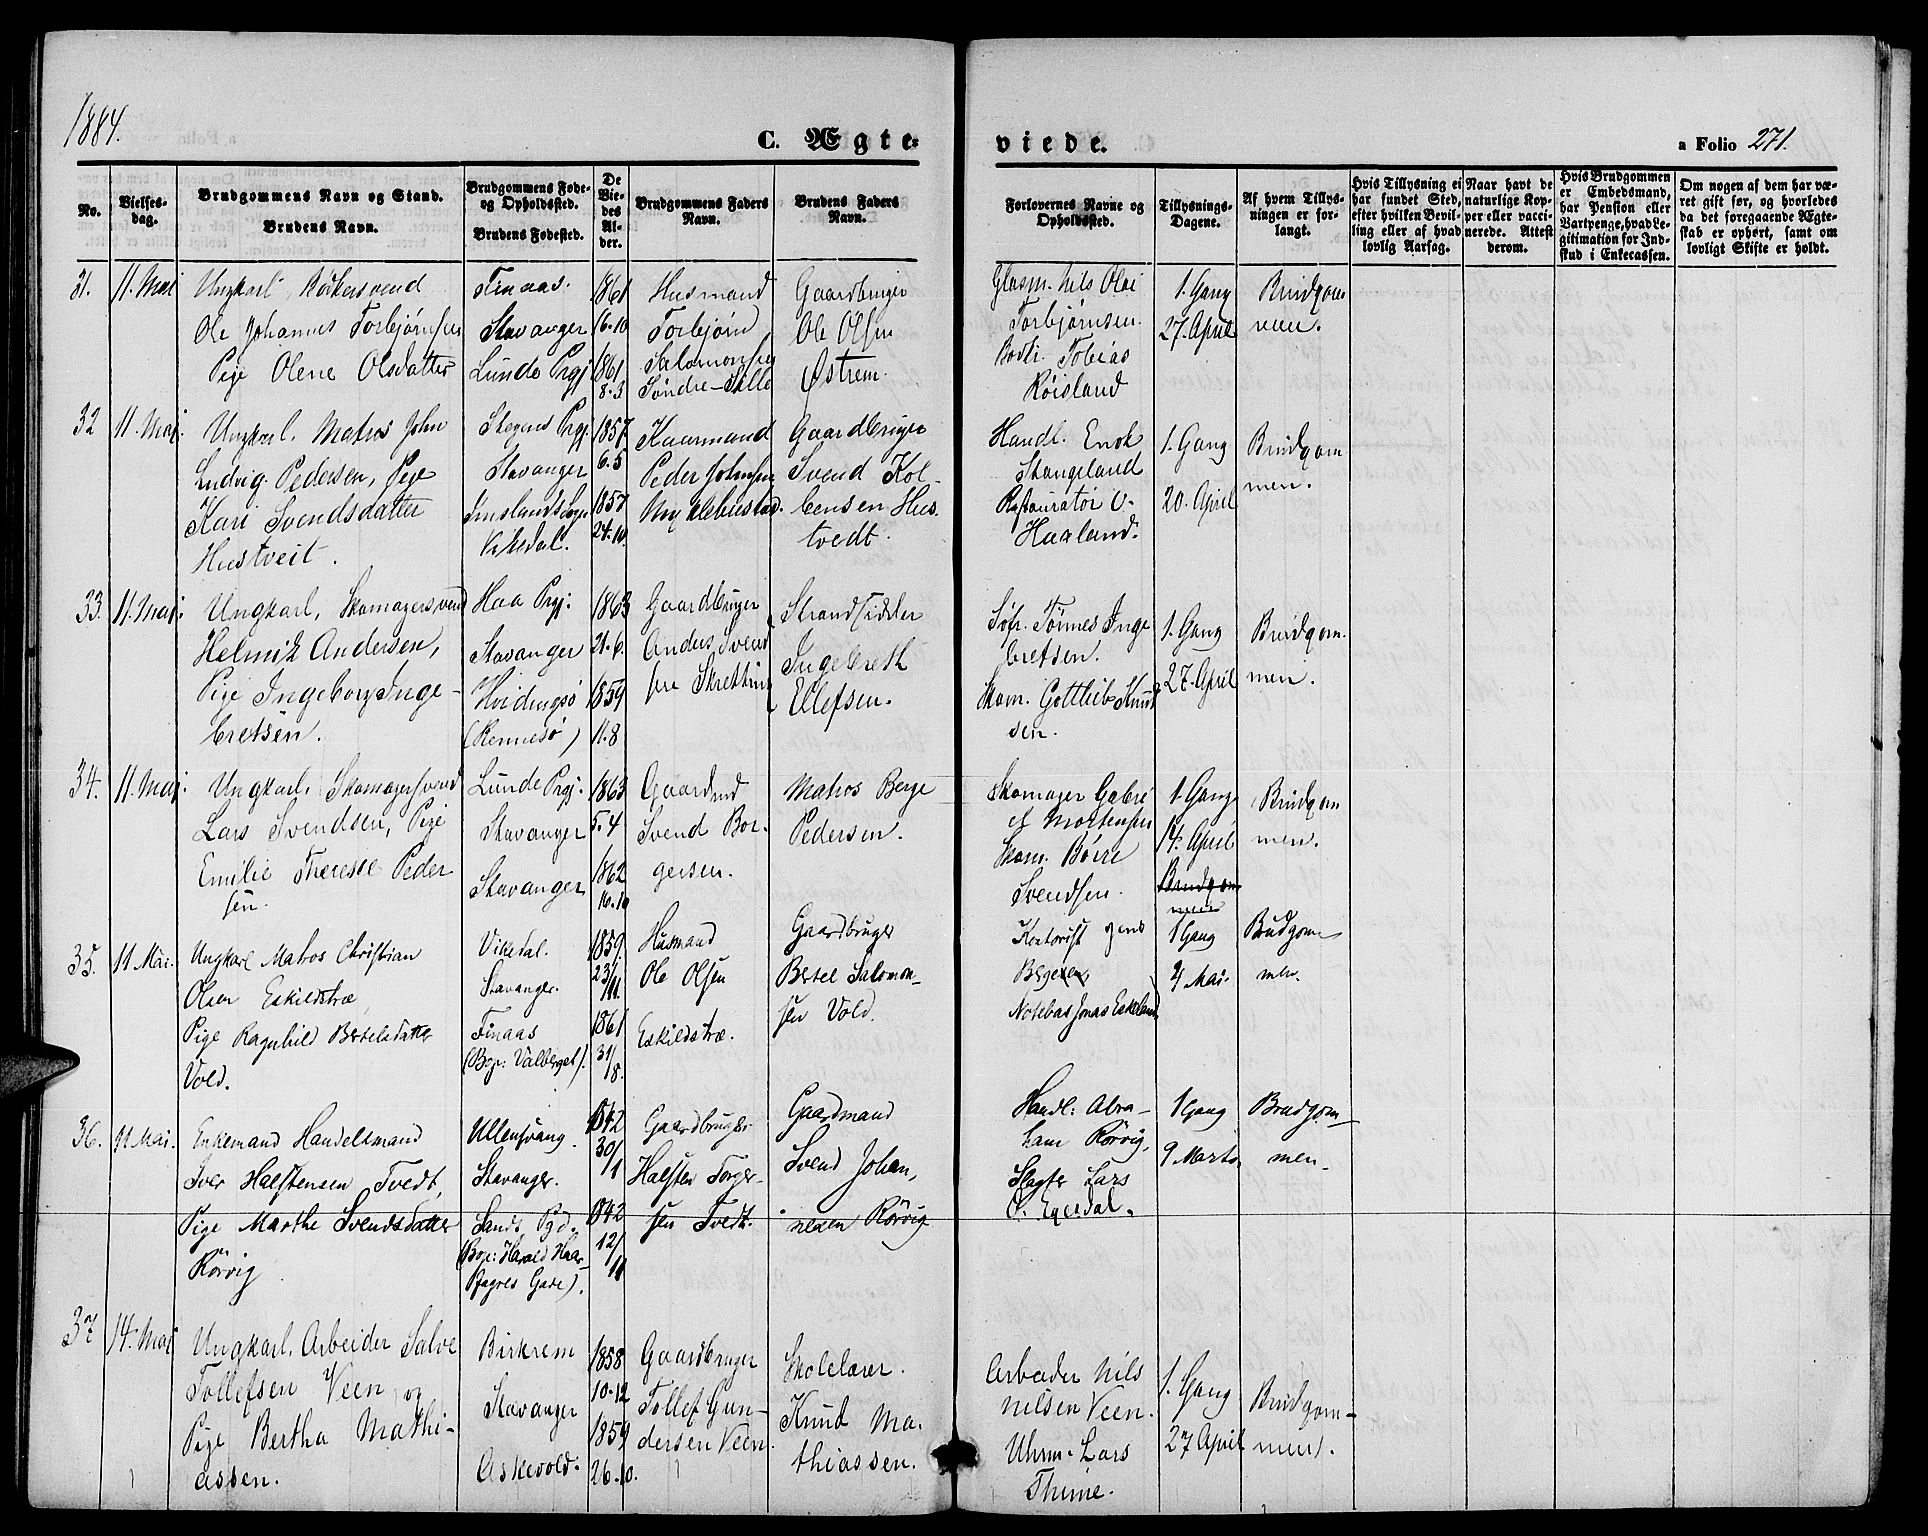 1884.
C. Ægte-
viede.
a Folio 271.
No.
Vielses-
dag.
Brudgommens Navn og Stand.
Brudens Navn.
Brudgommens Føde-
og Opholdssted.
Brudens Fødested.
De
Vie-
des
Al-
der.
Brudgommens Faders
Navn.
Brudens Faders
Navn.
Forlovernes Navne og
Opholdssted.
Tillysnings-
Dagene.
Af hvem Tillys-
ningen er for-
langt.
Hvis Tillysning ei
har fundet Sted,
efter hvilken Bevil-
ling eller af hvad
lovlig Aarsag.
Naar havt de
naturlige Kop-
per eller vacci-
nerede. Attest
derom.
Hvis Brudgommen
er Embedsmand,
har Pension eller
Vartpenge, hvad Le-
gitimation for Ind-
skud i Enkecassen.
Om nogen af dem har væ-
ret gift før, og hvorledes
da det foregaaende Ægte-
skab er ophørt, samt om
lovligt Skifte er holdt.
31.
11. Mai
Ungkarl,
Ole Johannes Torbjørnsen
Pige Olene Olsdatter
Finaas.
Stavanger
Lunde Prgj
1861
16-10
1861
8-3
Husmand
Torbjørn
Salomonsen
Søndre-Sille
Gaardbruger
Ole Olsen
Østrem.
Glasm. Nils Olai
Torbjørnsen.
Tobias
Røisland
1. Gang
27. April
Brudgom
men.
32
11. Mai.
Ungkarl, Matros John
Ludvig Pedersen, Pige
Kari Svendsdatter
Hustveit.
Stegens Prgj.
Stavanger
Imslands Sogn
Vikedal.
1857
6-5
1857
24-10.
Kaarmand
Peder Johnsen
Myklebustad.
Gaardbruger
Svend Kol-
bensen Hus
tvedt.
Handl. Enok
Stangeland
Restauratør O.
Haaland.
1. Gang
20. April
Brudgom
men.
33.
11. Mai.
Ungkarl, Skomagersvend
Helmik Andersen,
Pige Ingeborg Inge-
bretsen.
Haa Prgj.
Stavanger
Hvidingsø
(Rennesø)
1863
21-6.
1859
11-8
Gaardbruger
Anders Svend
sen Skretting
Strandsidder
Ingebreth
Ellefsen.
Søfr. Tønnes Inge
bretsen.
Skom. Gottlieb Knud
sen.
1. Gang
27. April
Brudgom.
men.
34.
11. Mai.
Ungkarl, Skomagersvend
Lars Svendsen, Pige
Emilie Therese Peder
sen.
Lunde Prgj.
Stavanger
Stavanger
1863
5-4
1862
16-10
Gaardmd
Svend Bør-
gersen.
Matros Berge
Pedersen.
Skomager Gabri
el Mortensen
Skom. Børre
Svendsen.
1. Gang
14. April
Brudgom
men
Brudgom
men.
35.
11 Mai.
Ungkarl Matros Christian
Olsen Eskildstræ
Pige Ragnhild Bertelsdatter
Vold.
Vikedal.
Stavanger.
Finaas
(Bop: Valberget).
1859.
23/11.
1861
31/8.
Husmand
Ole Olsen
Eskildstræ.
Gaardbruger
Bertel Salomon-
sen Vold.
Kontorist
Notebas Jonas Eskeland
1 Gang
4 Mai.
Brudgom
men.
36.
11 Mai.
Enkemand Handelsmand
Iver Halstensen Tvedt,
Pige Marthe Svendsdatter
Rørvig
Ullensvang.
Stavanger.
Sands Pgd.
(Bop: Harald Haar-
fagres Gade).
1842
30/1
1842
12/11
Gaardbruger
Halsten Torger-
sen Tvedt.
Gaardmand
Svend Johan,
nesen Rørvig
Handl: Abra-
ham Rørvig,
Slagter Lars
O. Egesdal.
1 Gang
9 Marts
Brudgom-
men.
37
14. Mai
Ungkarl, Arbeider Salve
Tollefsen Veen, og
Pige Bertha Mathi-
assen.
Birkrem
Stavanger
Askevold.
1858
10-12
1859
26-10.
Gaardbruger
Tollef Gun-
dersen Veen.
Skolelærer.
Knud Ma-
thiassen.
Arbeider Nils
Nilsen Veen.
Uhrm. Lars
Thime.
1. Gang
27 April
Brudgom-
men.